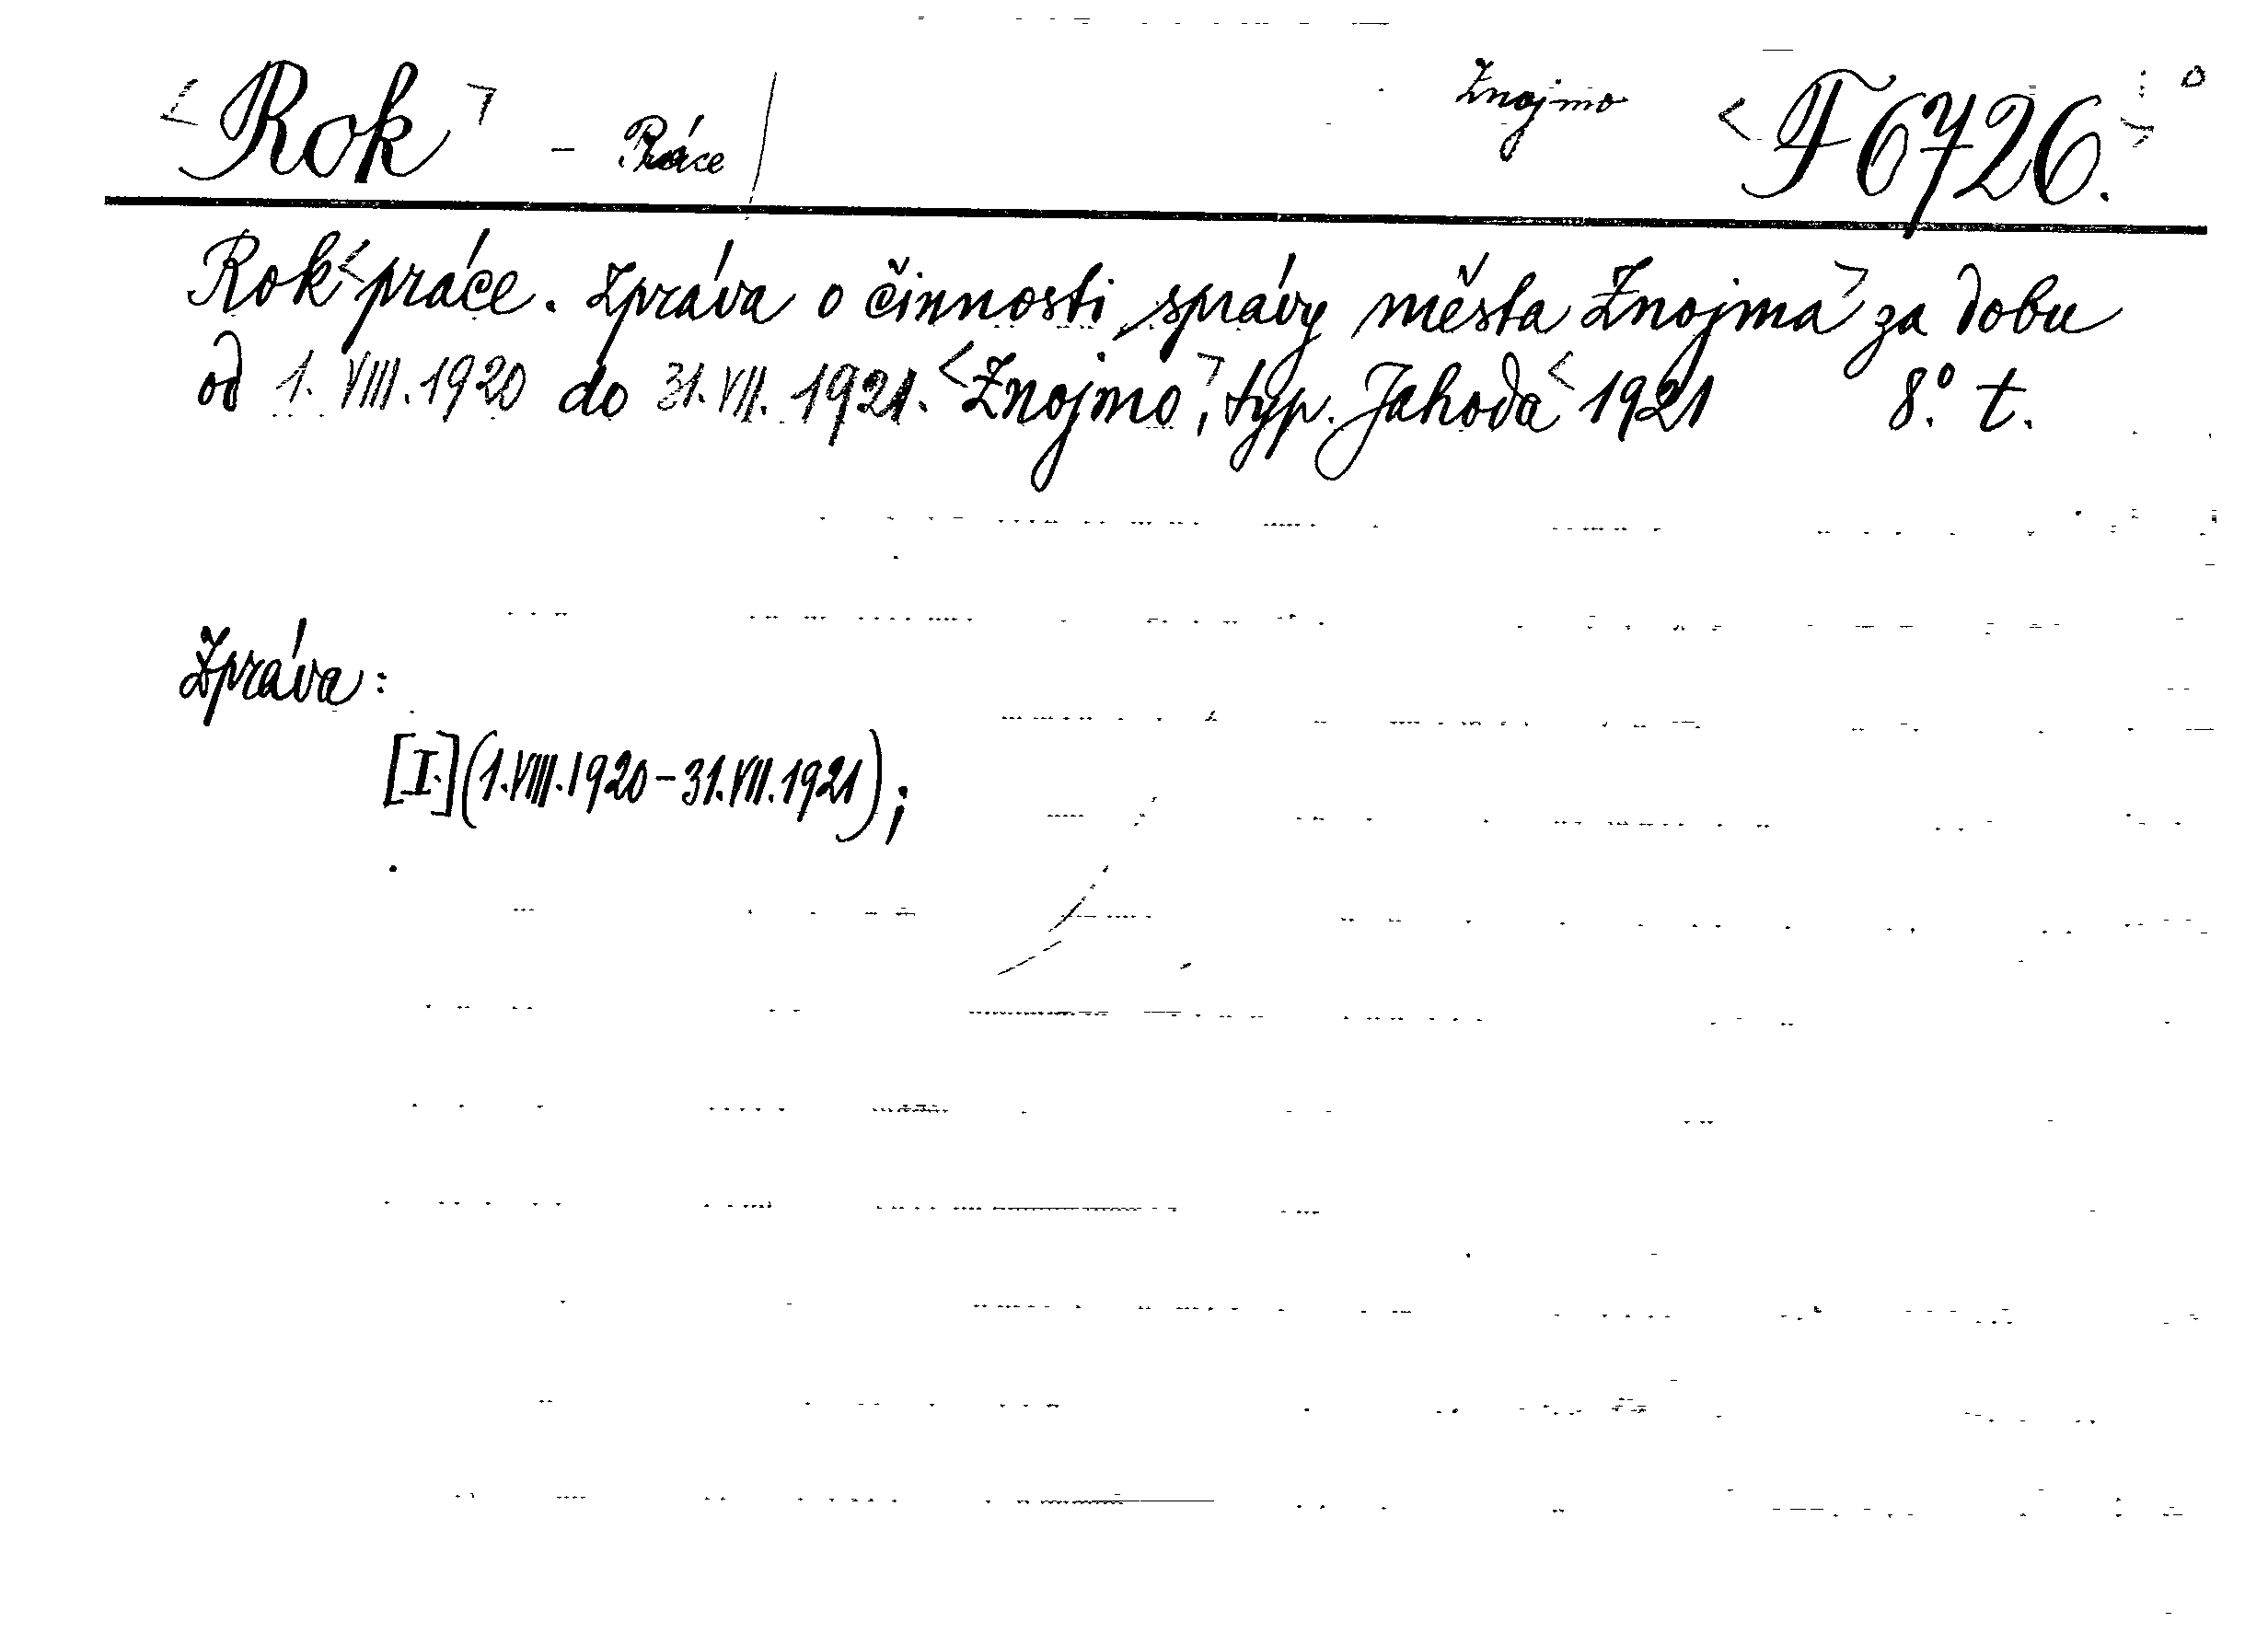 <Rok> - Práce Znojmo <F 6726.>
Rok <práce. Zpráva o činnosti správy města Znojma> za dobu
od 1. VIII. 1920 do 31. VII. 1921. <Znojmo>, typ. Jahoda < 1921 8.° t.
Zpráva:
[I.] (1.VIII.1920-31.VII.1921);